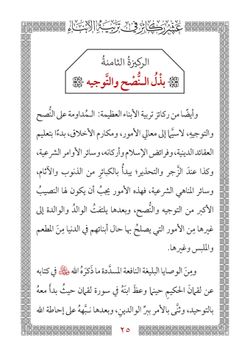 عشر ركائز في تربية الأبناء
الركيزة الثامنة
بذل النصح والتوجيه
وأيضًا من ركائز تربية الأبناء العظيمة: المداومة على النصح
والتوجيه، لاسيَّما إلى معالي الأمور، ومكارم الأخلاق، بدءًا بتعليم
العقائد الدينية، وفرائض الإسلام وأركانه، وسائر الأوامر الشرعية،
وكذا عندَ الزَّجر والتحذير؛ يبدأ بالكبائر من الذنوب والآثام،
وسائر المناهي الشرعية، فهذه الأمور يجبُ أن يكون لها النصيبُ
الأكبر من التوجيه والنُّصح، وبعدها يلتفتُ الوالدُ والوالدة إلى
غيرها مِنَ الأمور التي يصلحُ بها حال أبنائهم في الدنيا مِنَ المطعم
والملبس وغيرها.
ومِنَ الوصايا البليغة النافعة المسدَّدة ما ذكرَهُ الله ﷻ في كتابه
عن لقمانَ الحكيم حينما وعظَ ابنَهُ في سورة لقمان حيثُ بدأ معهُ
بالتوحيد، وثنَّى بالأمر ببرِّ الوالدين، وبعدها نبَّههُ على إحاطة الله
٢٥